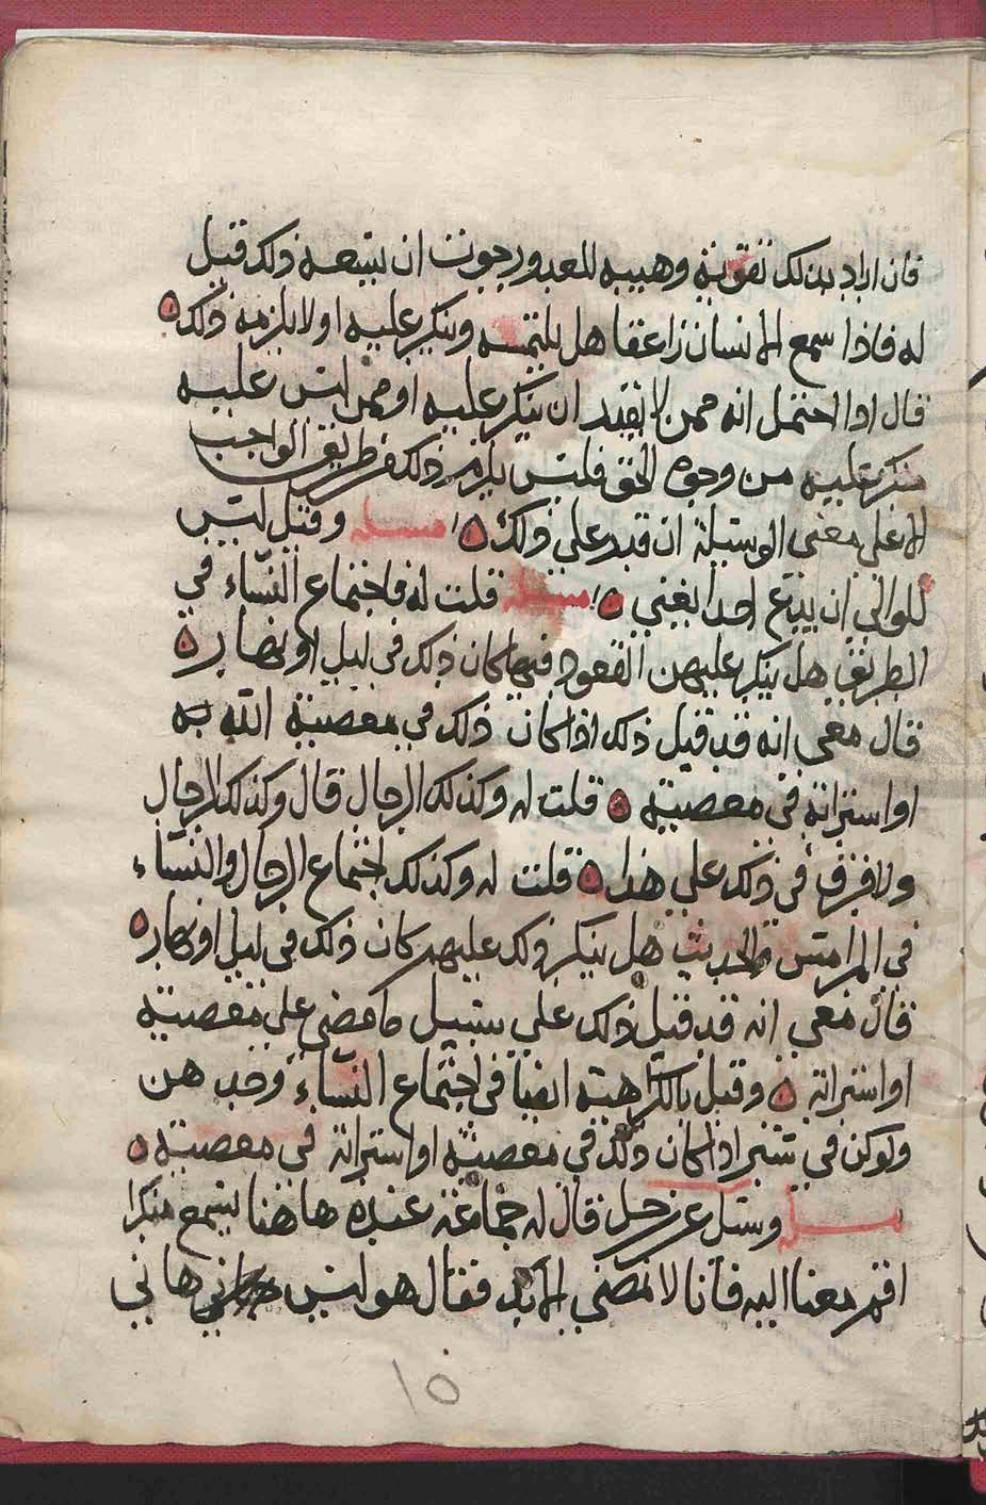 فان اراد بذلك تقوية وهيبه للعدو رجوت ان يسعه ذلك قيل
له فاذا سمع الانسان زاعقا هل يلتمسه وينكر عليه او لا يلزمه ذلك ه
قال اذا احتمل انه ممن لا يفيد ان ينكر عليه او ممن ليس عليه
منكر عليه من وجوه الحق فليس يلزم ذلك من طريق الواجب
الا على معنى الوسيلة ان قدر على ذلك ه مسئله وقيل ليس
للوالي ان يدع احدا يغني ه مسئله قلت له فاجتماع النساء في
الطريق هل ينكر عليهن القعود فيها كان ذلك في ليل او نهار ه
قال معي انه قد قيل ذلك اذا كان ذلك في معصية الله به
او استرابة في معصية ه قلت له وكذلك الرجال قال وكذلك الرجال
ولا فرق في ذلك على هذا ه قلت له وكذلك اجتماع الرجال والنساء
في المرامس والحديث هل ينكر ذلك عليهم كان ذلك في ليل او نهار ه
قال معي انه قد قيل ذلك على سبيل ما مضى على معصية
او استرابة ه وقيل بالكراهية ايضا في اجتماع النساء وحدهن
ولو كن في ستر اذا كان ذلك في معصية او استرابة في معصية ه
مسئله وسئل عن رجل قال له جماعة عنده ها هنا نسمع منكرا
اقم معنا اليه فانا لا نمضي الا بك فقال هو ليس هاني